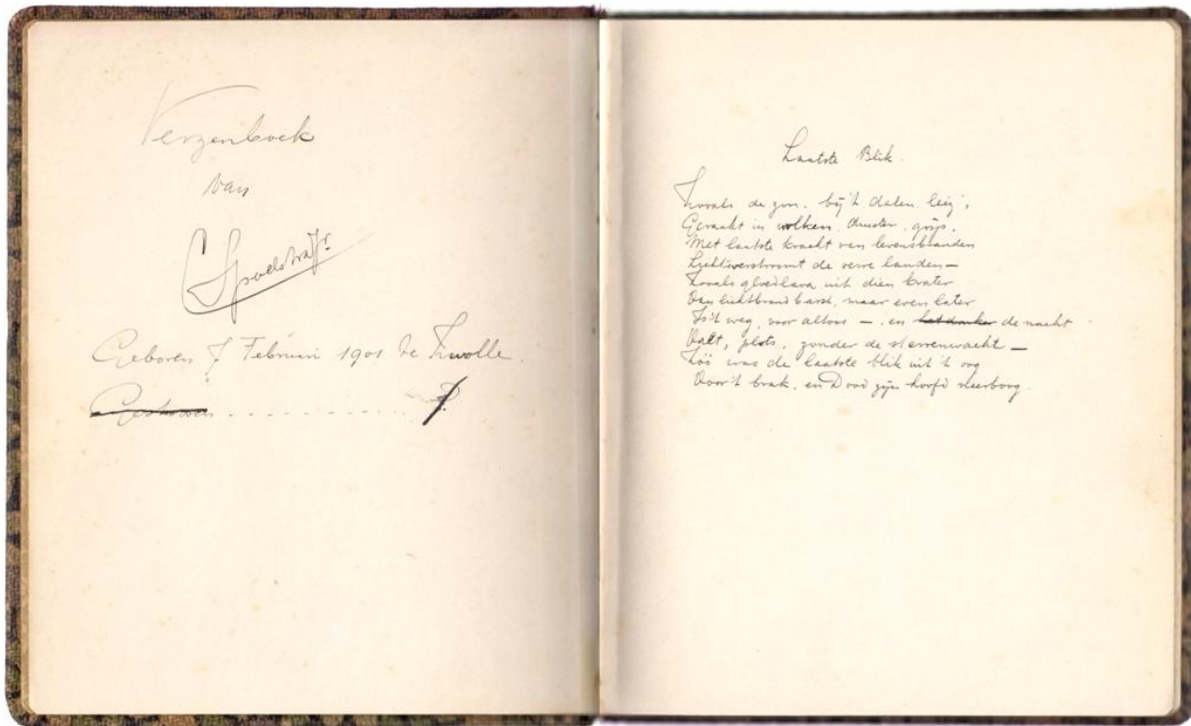 Verzenboek
van
C Spoelstra Jr.
Geboren 7 Februari 1901 te Zwolle.
Gestorven - - - - - - - - - - - -
Laatste Blik.
Zooals de zon, bij 't dalen
Geraakt in wolken, duister, grijs,
Met laatste kracht van levensbranden
Lichtoverstroomt de verre landen —
Zooals gloedlava uit dien krater
Van lichtbrand barst, maar even later
Is 't weg, voor altoos — en het donker de nacht
Valt, plots, zonder de sterrenwacht —
Zóó was de laatste blik uit 't oog
Voor 't brak, en Dood zijn hoofd neerboog.